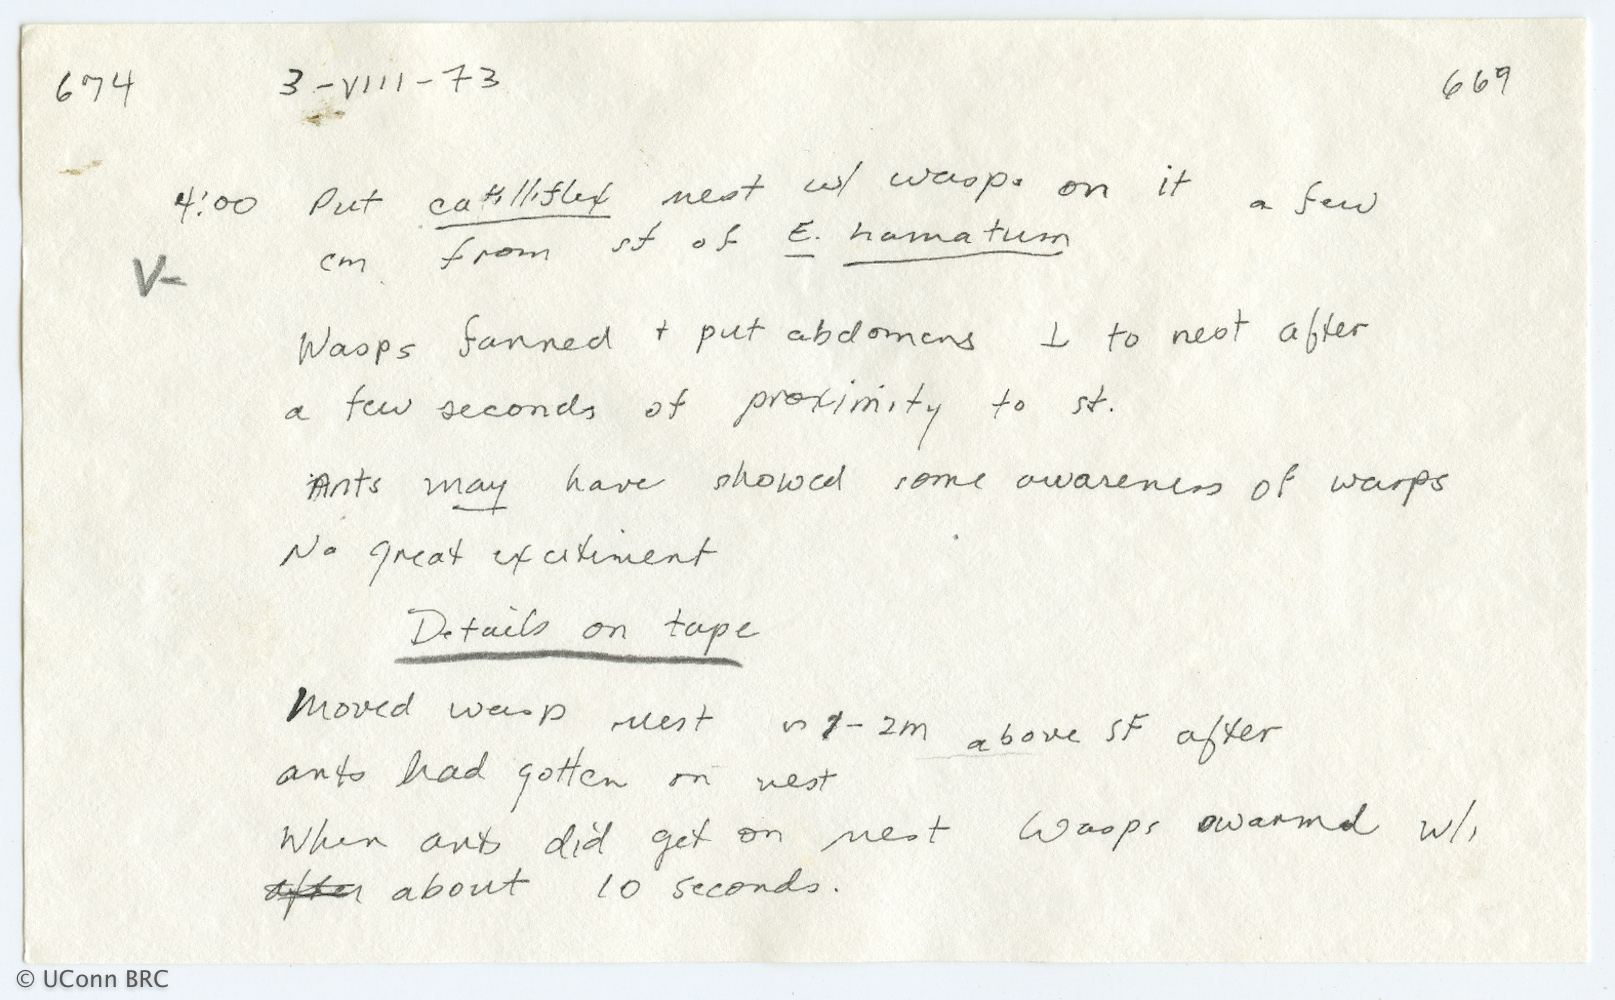 674 3-VIII-73 669
4:00 Put catilliflex nest w/ wasps on it a few
cm from st of E. hamatum
V-
Wasps fanned + put abdomens ⊥ to nest after
a few seconds of proximity to st.
Ants may have showed some awareness of wasps
No great excitiment
Details on tape
Moved wasp nest ~ 1-2m above st after
ants had gotten on nest
When ants did get on nest Wasps swarmd w/i
after about 10 seconds.
© UConn BRC